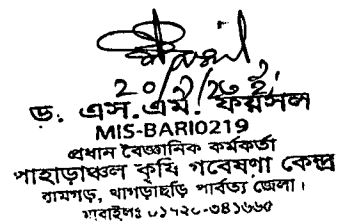 ড: এস.এম. ফয়সল
MIS-BARI0219
প্রধান বৈজ্ঞানিক কর্মকর্তা
পাহাড়াঞ্চল কৃষি গবেষণা কেন্দ্র
রামগড়, খাগড়াছড়ি পার্বত্য জেলা।
মোবাইলঃ ০১৭২০-৩৪১৬৬৫